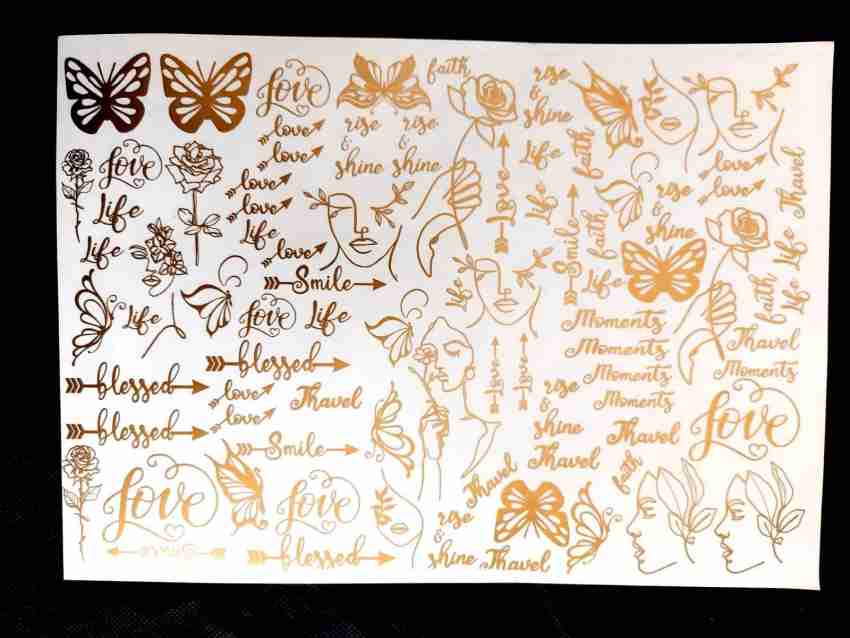 Love
faith
rise
&
shine
love
love
rise
&
shine
rise
&
shine
Love
Life
Life
faith
love
love
Thavel
love
love
Life
love
Life
Life
Love
Smile
faith
rise
&
shine
Life
Life
Smile
Life
Life
faith
Life
Life
Love
Life
Moments
Moments
Moments
Moments
Thavel
Moments
blessed
blessed
blessed
love
love
Thavel
Love
Love
rise
&
shine
Thavel
Thavel
Love
Smile
Thavel
faith
Love
Love
rise
&
shine
Smile
blessed
Thavel